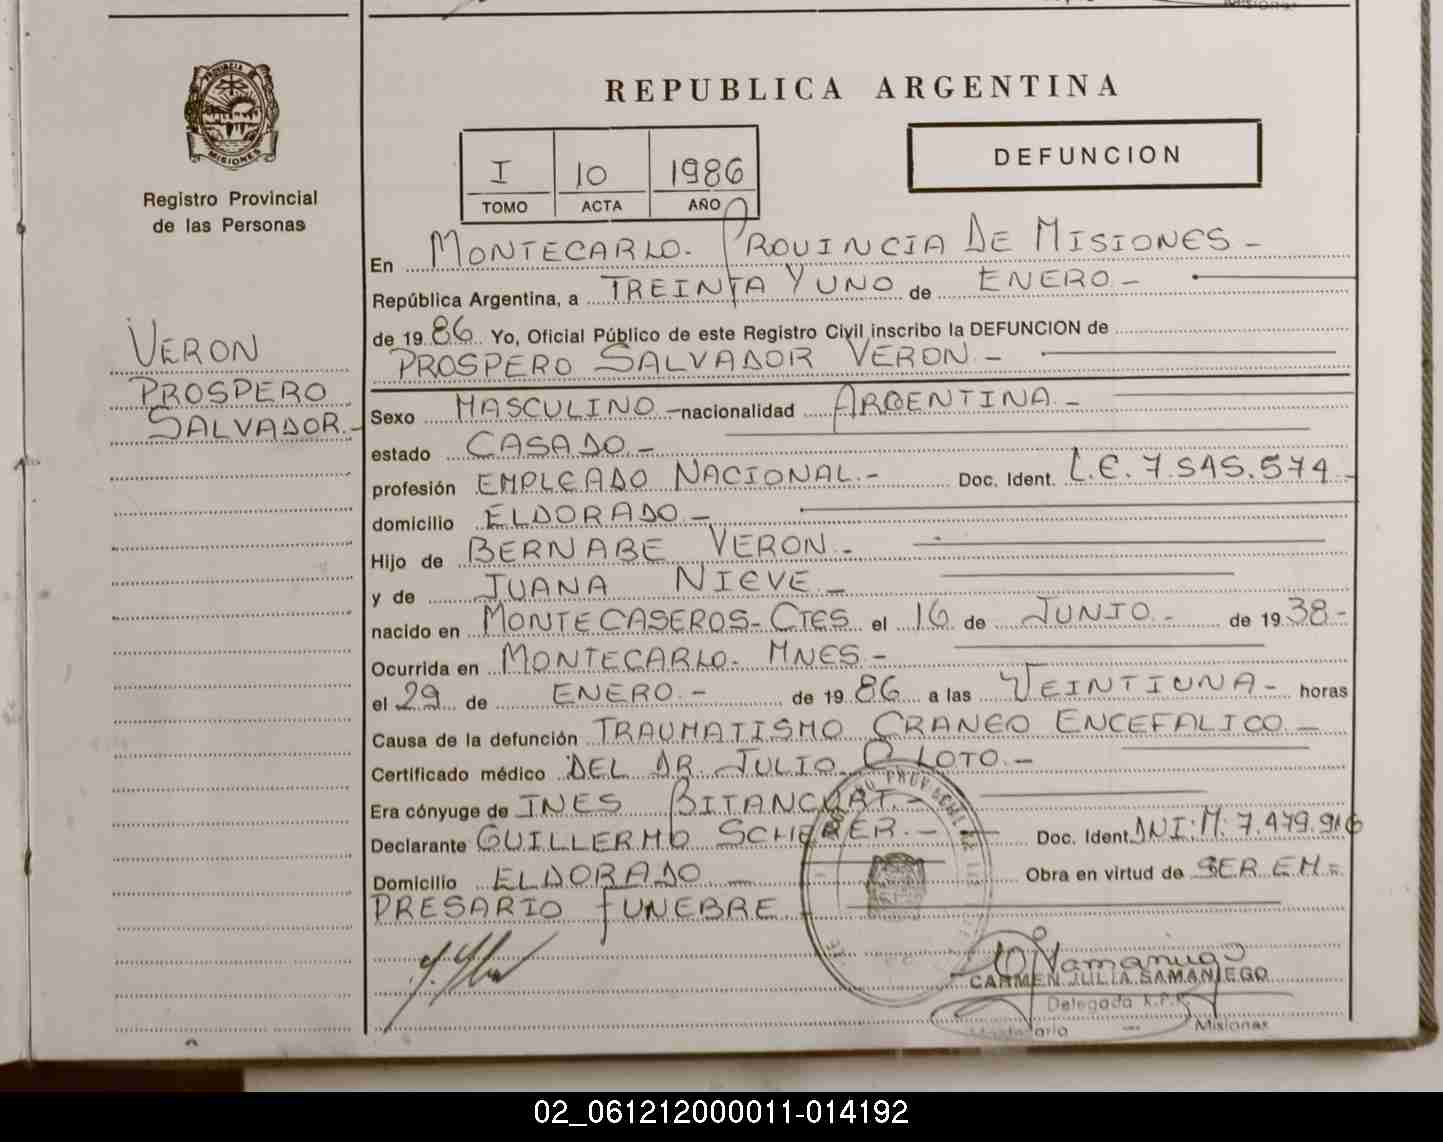 PROVINCIA DE
MISIONES
Registro Provincial
de las Personas
VERON
PROSPERO
SALVADOR.-
REPUBLICA ARGENTINA
I 10 1986
TOMO ACTA AÑO
DEFUNCION
En MONTECARLO. PROVINCIA DE MISIONES -
República Argentina, a TREINTA Y UNO de ENERO.-
de 19 86. Yo, Oficial Público de este Registro Civil inscribo la DEFUNCION de
PROSPERO SALVADOR VERON.-
Sexo MASCULINO - nacionalidad ARGENTINA.-
estado CASADO.-
profesión EMPLEADO NACIONAL.- Doc. Ident. L.E. 7.545.574.-
domicilio ELDORADO.-
Hijo de BERNABE VERON.-
y de JUANA NIEVE.-
nacido en MONTECASEROS- CTES el 16 de JUNIO.- de 19 38-
Ocurrida en MONTECARLO. MNES.-
el 29 de ENERO.- de 19 86 a las VEINTIUNA- horas
Causa de la defunción TRAUMATISMO CRANEO ENCEFALICO.-
Certificado médico DEL DR. JULIO O LOTO.-
Era cónyuge de INES BITANCURT.-
Declarante GUILLERMO SCHERER.- Doc. Ident. DNI: M: 7.479.916
Domicilio ELDORADO - Obra en virtud de SER EM=
PRESARIO FUNEBRE
CARMEN JULIA SAMANIEGO
Delegada R.P.P.
Montecarlo — Misiones
02_061212000011-014192